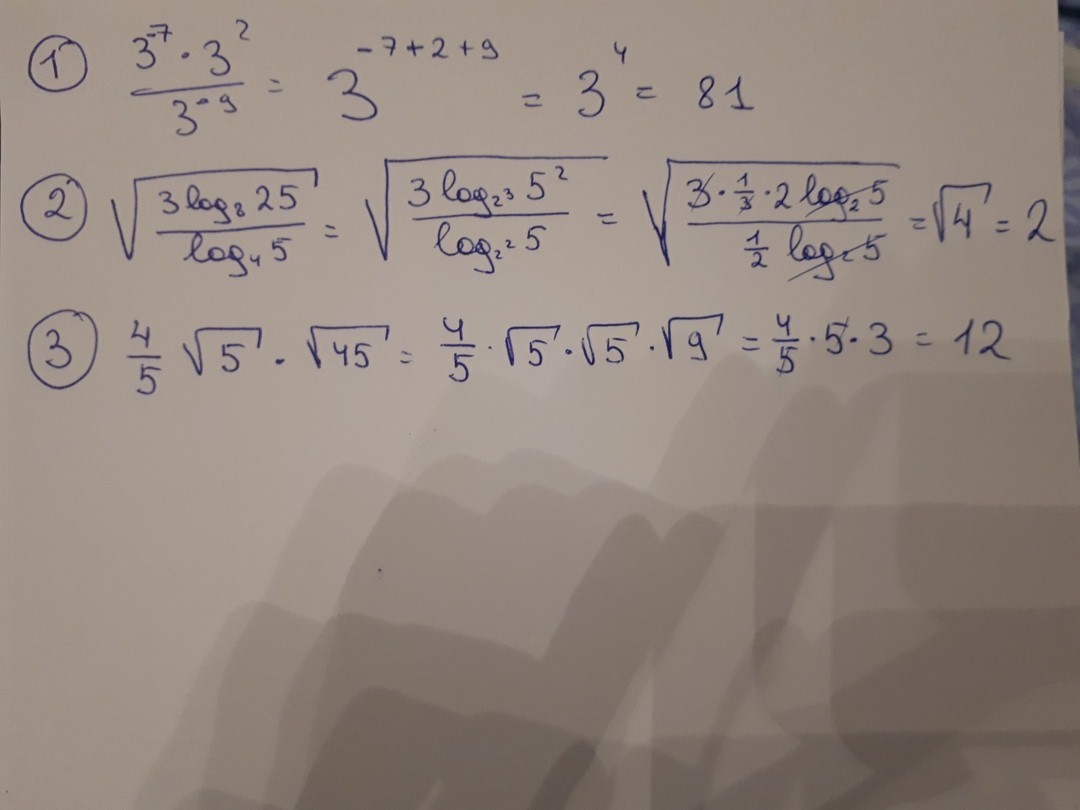 ① (3⁻⁷ · 3²)/(3⁻⁹) = 3⁻⁷⁺²⁺⁹ = 3⁴ = 81
② √((3 log₈ 25)/(log₄ 5)) = √((3 log_{2³} 5²)/(log_{2²} 5)) = √((3 · 1/3 · 2 log₂ 5)/(1/2 log₂ 5)) = √4 = 2
③ 4/5 √5 · √45 = 4/5 · √5 · √5 · √9 = 4/5 · 5 · 3 = 12